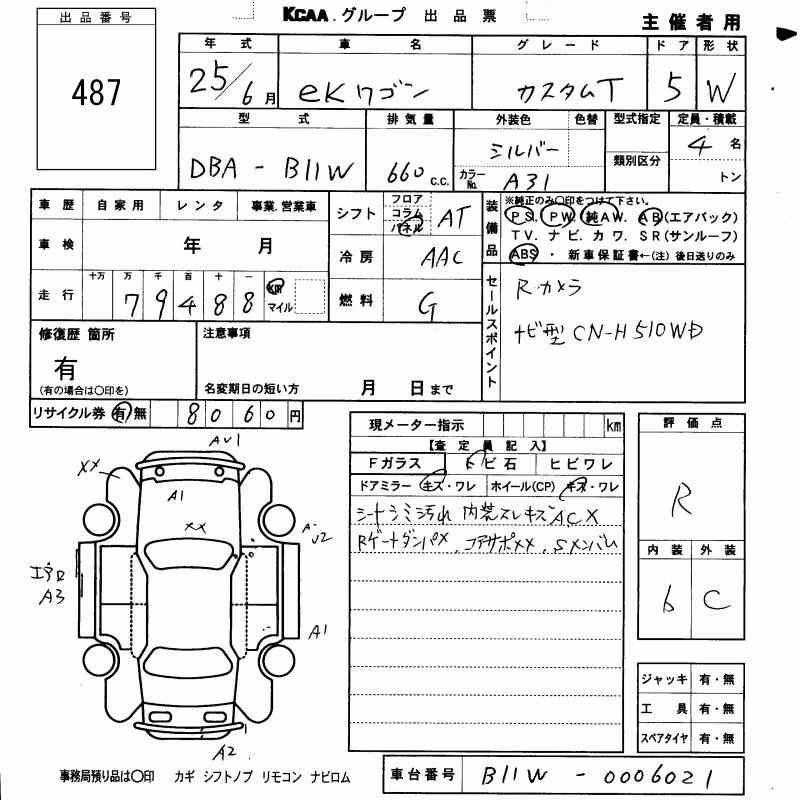 出品番号
487
KCAA.グループ 出品票
主催者用
年式 車名 グレード ドア 形状
25/6月 eKワゴン カスタムT 5 W
型式 排気量 外装色 色替 型式指定 定員・積載
DBA - B11W 660 c.c. シルバー 類別区分 4名
カラーNo. A31 トン
車歴 自家用 レンタ 事業.営業車
シフト フロア コラム パネル AT
装備品 ※純正のみ〇印をつけて下さい。
PS. PW. 純AW. AB(エアバック)
TV. ナビ. カワ. SR(サンルーフ)
ABS・新車保証書←(注)後日送りのみ
車検 年 月
冷房 AAC
走行 十万 万 千 百 十 一
79488 km マイル
燃料 G
セールスポイント
Rカメラ
ナビ型 CN-H510WD
修復歴 箇所
有
(有の場合は〇印を)
注意事項
名変期日の短い方 月 日まで
リサイクル券 有 無 8060円
現メーター指示 km
【査定員記入】
Fガラス トビ石 ヒビワレ
ドアミラー キズ・ワレ ホイール(CP) キズ・ワレ
シートシミ汚れ 内装スレキズ ACX
Rゲートダンパ×, コアサポ××, S×ンバム
評価点
R
内装 外装
6 C
ジャッキ 有・無
工具 有・無
スペアタイヤ 有・無
AV1
XX
A1
XX
A3
A1
A2
事務局預り品は〇印 カギ シフトノブ リモコン ナビロム
車台番号 B11W - 0006021